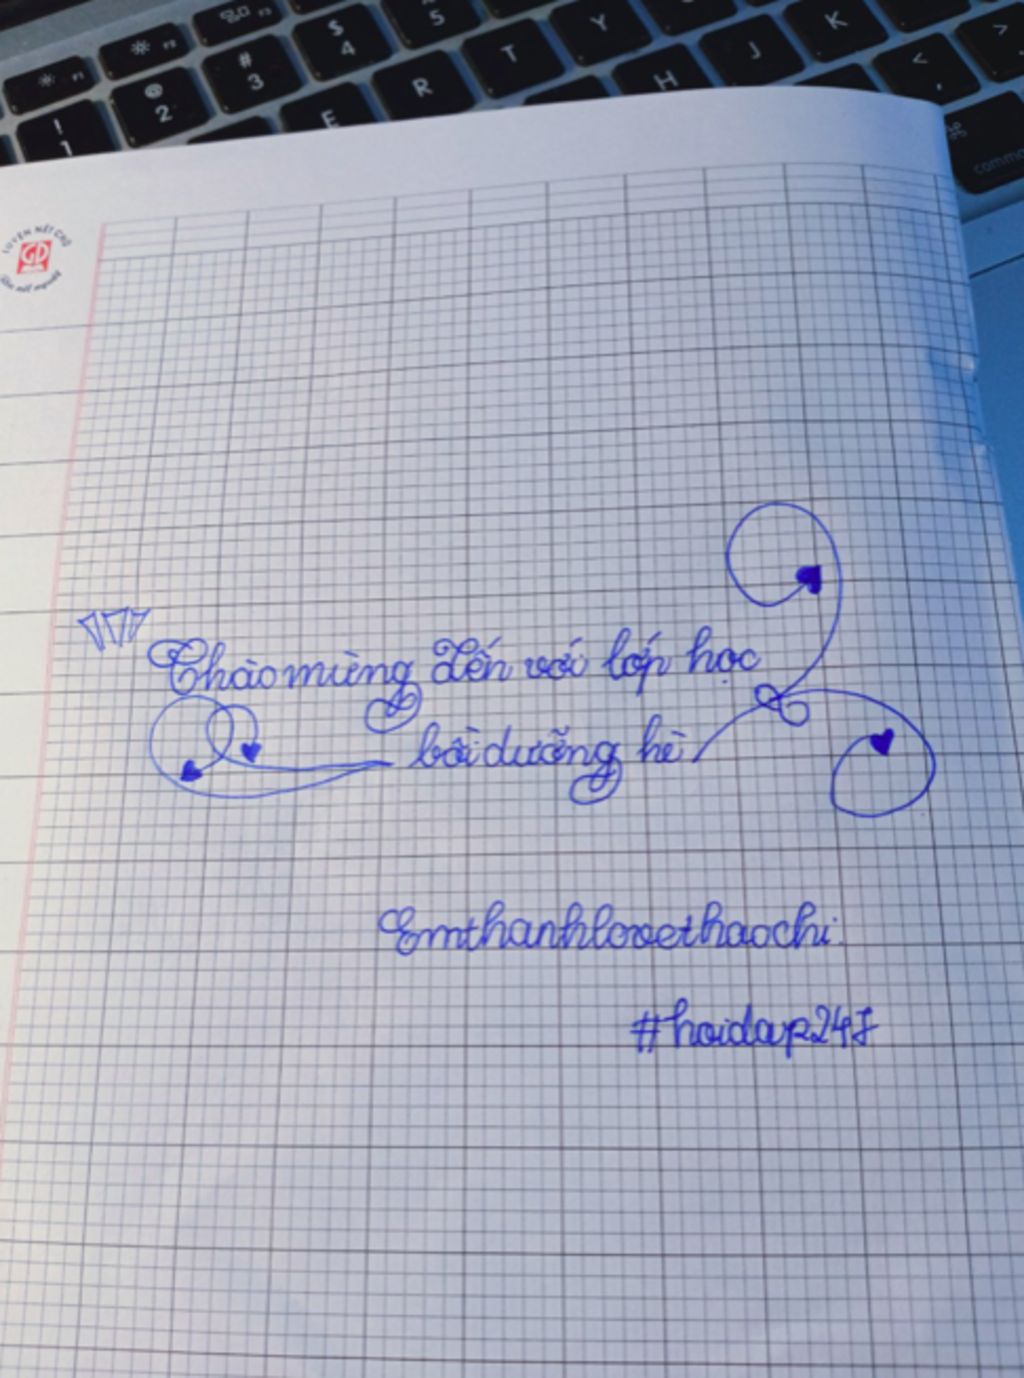 ! 1
@ 2
# 3
$ 4
5
E
R
T
Y
H
J
K
F1
F2
F3
< ,
>
⌘
LUYỆN NÉT CHỮ
GD
Chào mừng đến với lớp học
bồi dưỡng hè
Emthanhlovethaochi.
#hoidap247